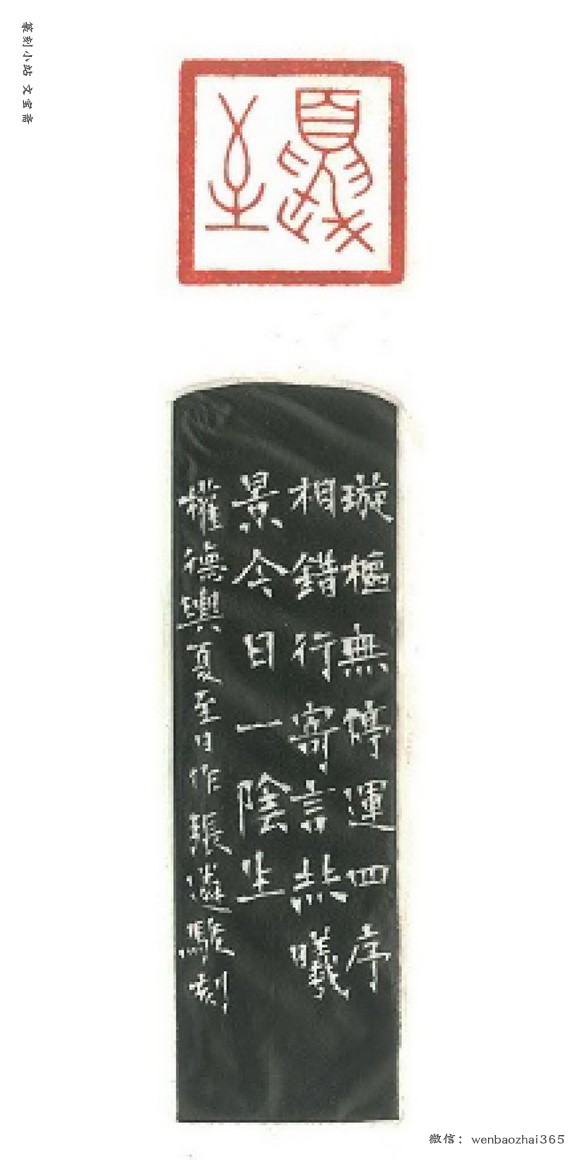 篆刻小站 文宝斋
夏至
璇樞無停運四序
相錯行寄言赫曦
景今日一陰生
權德輿夏至日作張遴駿刻
微信：wenbaozhai365